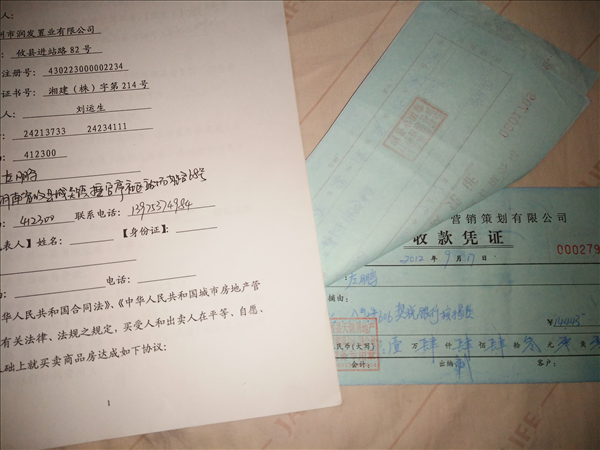 人：
州市润发置业有限公司
：攸县进站路 82 号
注册号：430223000002234
证书号：湘建（株）字第 214 号
人：刘运生
：24213733 24234111
：412300
左鹏
：412300 联系电话：13975374984
表人】姓名： 【身份证】：
电话：
华人民共和国合同法》、《中华人民共和国城市房地产管
有关法律、法规之规定，买受人和出卖人在平等、自愿、
础上就买卖商品房达成如下协议：
1
营销策划有限公司
收款凭证
000279
2012 年 9 月 17 日
左鹏
摘由：
¥14443
民币(大写) 壹 万 肆 仟 肆 佰 肆 拾 叁 元 角
会计： 出纳 客户：